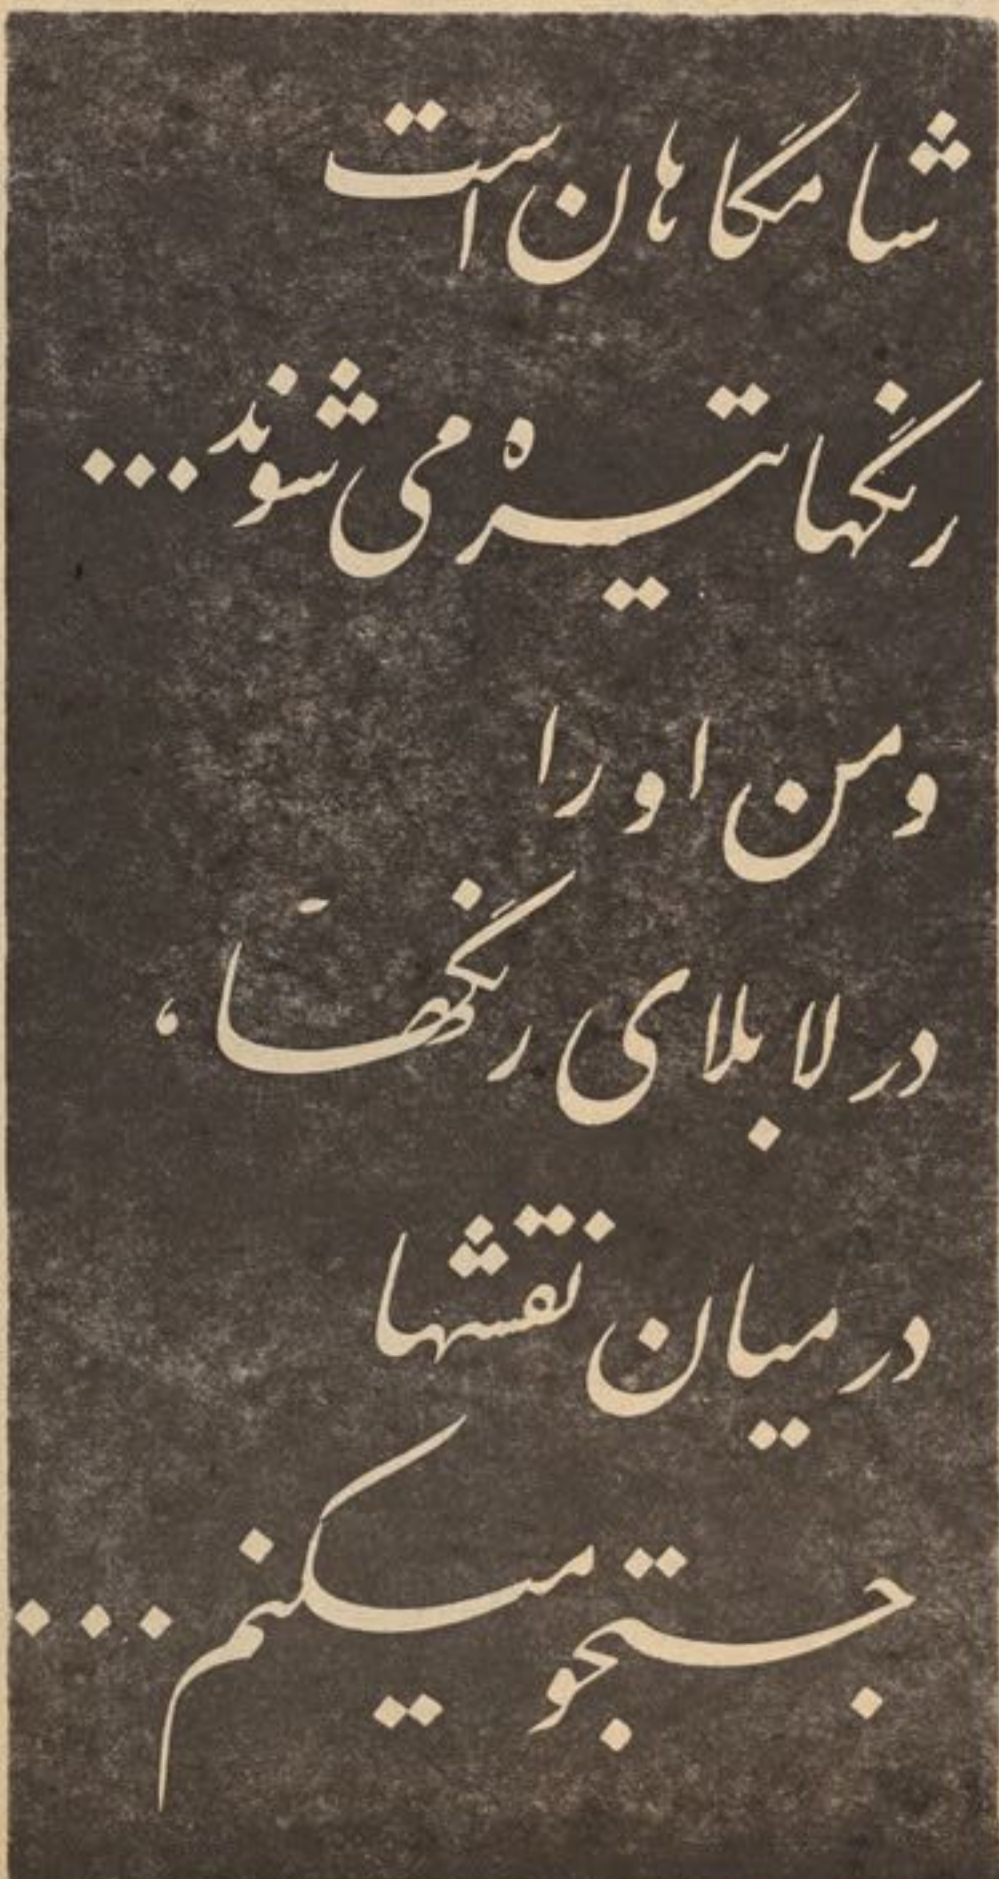 شامگاهان است
رنگها تیره می شوند...
و من او را
در لابلای رنگها،
در میان نقشها
جستجو میکنم...